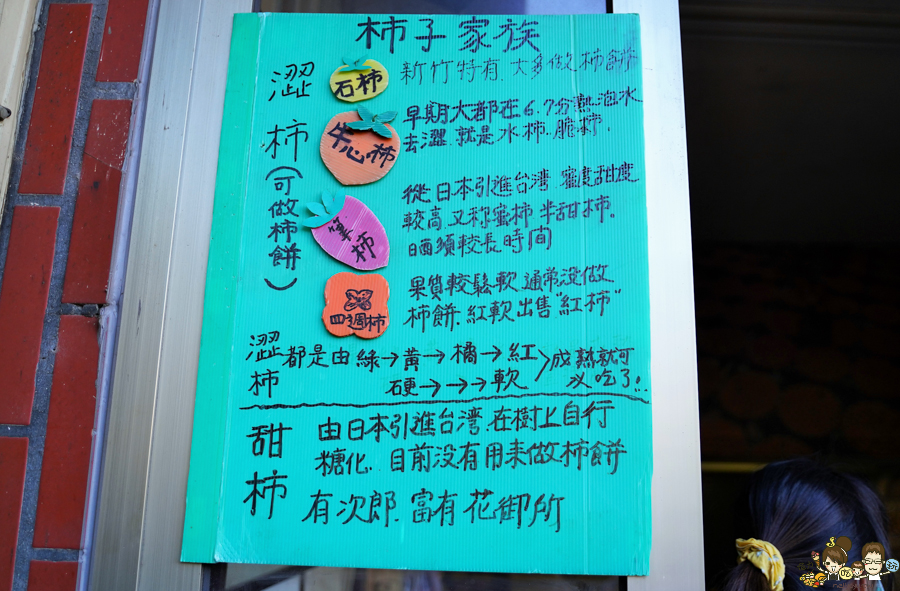 柿子家族
澀柿(可做柿餅)
石柿
新竹特有.大多做柿餅
牛心柿
早期大都在6.7分熟泡水
去澀.就是水柿.脆柿.
筆柿
從日本引進台灣.蜜度甜度
較高.又称蜜柿.半甜柿.
晒須較長時間
四週柿
果質較鬆軟.通常没做
柿餅.紅軟出售"紅柿"
澀柿
都是由綠→黃→橘→紅
硬→→→軟
成熟就可
以吃了!!
甜柿
由日本引進台灣.在樹上自行
糖化.目前没有用来做柿餅
有次郎.富有.花御所